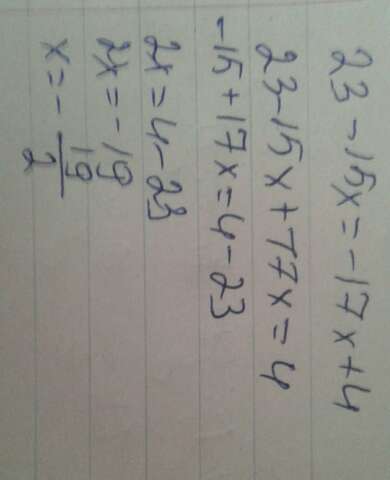 23-15x=-17x+4
23-15x+17x=4
-15+17x=4-23
2x=4-23
2x=-19
x=-19/2